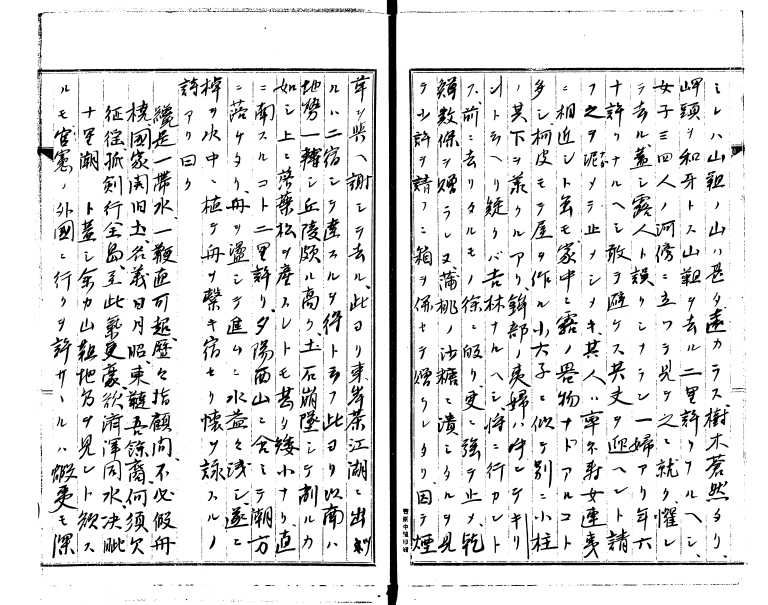 ミレハ山靼ノ山ハ甚タ遠カラス樹木蒼然タリ
岬頭ヲ和牙トス山靼ヲ去ル二里許リナルヘシ
女子三四人ノ河傍ニ立フヲ見テ之ニ就ク懼レ
テ去ル蓋シ露人ト誤リシナラン一婦アリ年六
十許リナルヘシ敢テ避ケス其丈ヲ迎ヘント請
フ之ヲ泥メテ止メシメキ其人ハ寧尓寿女連夷
ニ相近シト云モ家中ニ露ノ器物ナドアルコト
多シ柯皮モテ屋ヲ作ル小犬子ニ似テ別ニ小柱
ノ其下ヲ承クルアリ
ント云ヘリ疑クハ吉林ナルヘシ将ニ行カント
ス前ニ去リタルモノ徐ニ皈リ更ニ強テ止メ乾
鯡数條ヲ贈ラレ又蒲桃ノ沙糖ニ漬シタルヲ見
テ少許ヲ請フニ箱ヲ併セテ贈クレタリ因テ煙
草ヲ與ヘ謝シテ去ル此ヨリ東岸茶江湖ニ出
ルハ二宿シテ達スルヲ得ト云フ此ヨリ以南ハ
地勢一轉シ丘陵頗ル高ク土石崩墜シテ削ルカ
如シ上ニ落葉松ヲ産スレトモ甚タ矮小ナリ直
ニ南スルコト二里許リ夕陽西山ニ含ミテ潮方
ニ落ケタリ舟ヲ盪シテ進ムニ水益々浅シ遂ニ
棹ヲ水中ニ植テ舟ヲ繋キ宿セリ懐ヲ詠スルノ
詩アリ曰ク
纔是一帯水一鞭直可超歴々指顧間不必假舟
橈國家固旧土名義日月昭東韃吾餘裔何須欠
征徭孤剣行全島至此氣更豪欲府渾同水決眦
十里潮　ト蓋シ余カ山靼地方ヲ見ント欲ス
ルモ官憲ノ外國ニ行クヲ許サールハ蝦夷モ深